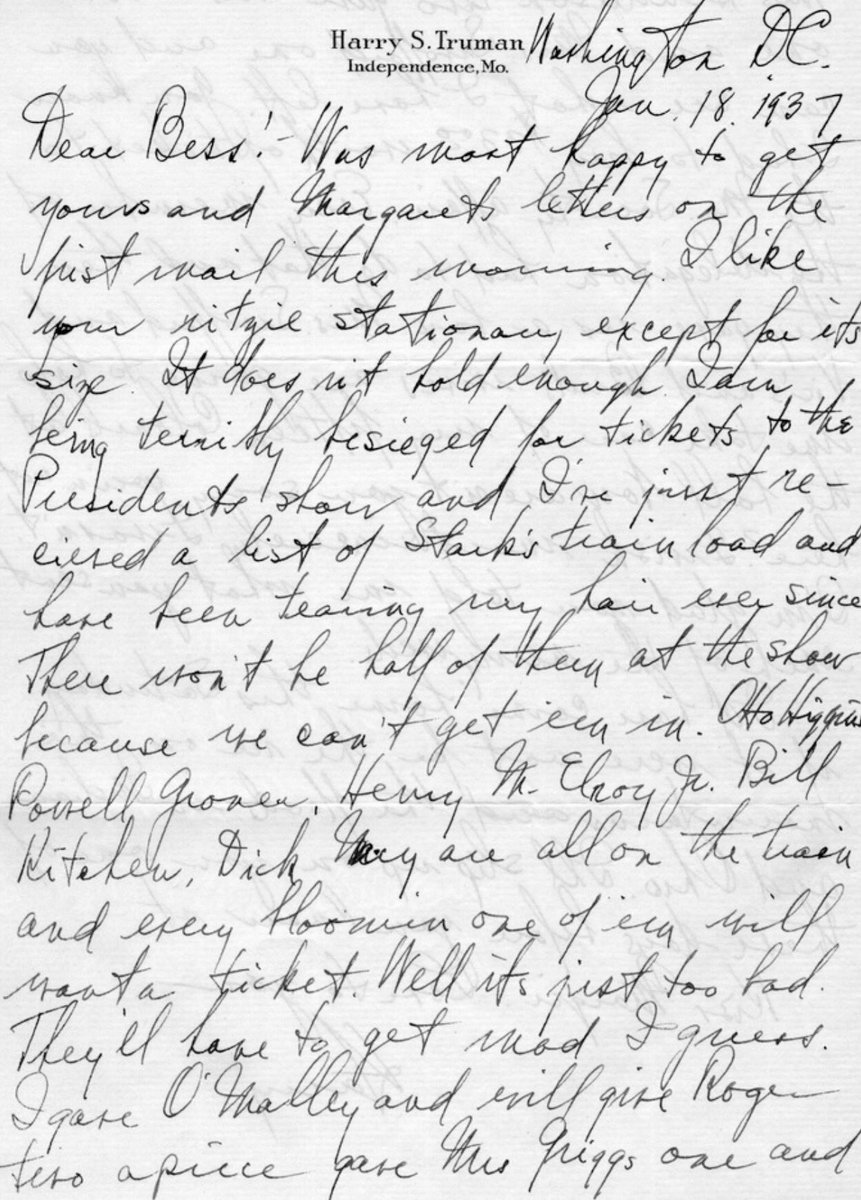 Harry S. Truman
Independence, Mo.
Washington D.C.
Jan. 18. 1937
Dear Bess:- Was most happy to get
yours and Margarets letters on the
first mail this morning. I like
your ritzie stationary except for its
size. It does n't hold enough. I am
being terribly besieged for tickets to the
Presidents show and I've just re-
cieved a list of Stark's train load and
have been tearing my hair ever since
There won't be half of them at the show
because we can't get 'em in. Otto Higgins
Powell Groner, Henry McElroy Jr. Bill
Kitchen, Dick are all on the train
and every bloomin one of 'em will
want a ticket. Well its just too bad.
They'll have to get mad I guess.
I gave O'Malley and will give Roger
two apiece gave Mrs Griggs one and